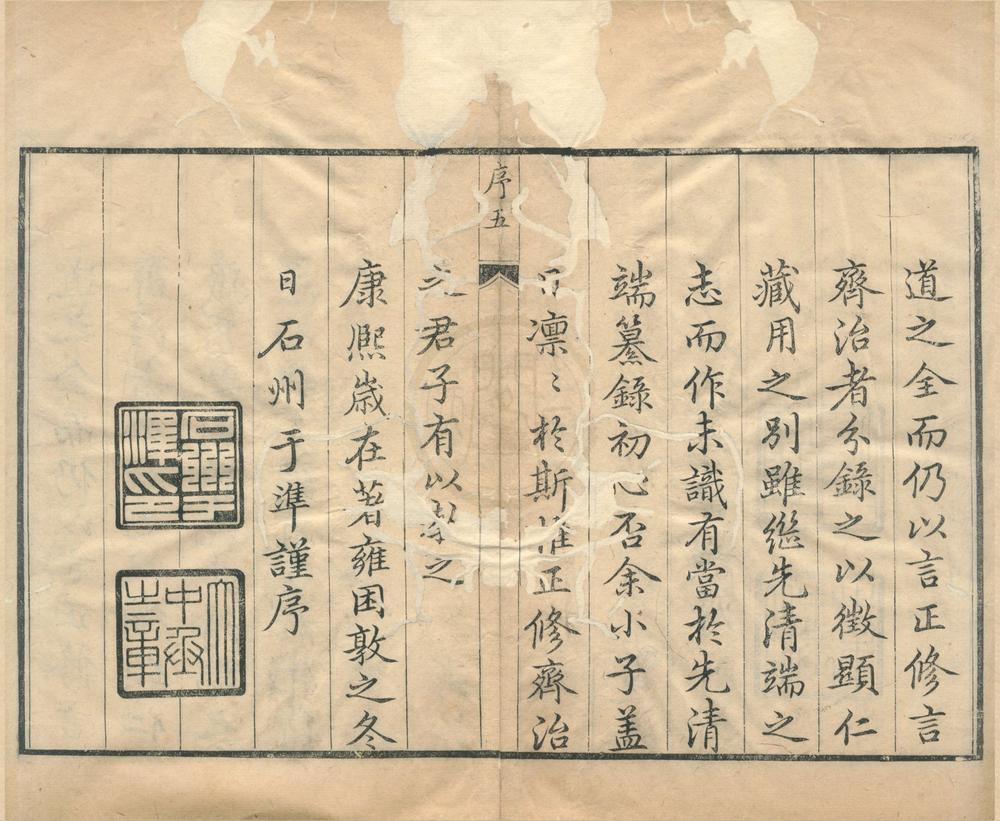 道之全而仍以言正修言
齊治者分錄之以徵顯仁
藏用之別雖繼先清端之
志而作未識有當於先清
端纂錄初心否余小子蓋
凛〻於斯惟正修齊治
序五
之君子有以
之
康熙歲在著雍困敦之冬
日石州于準謹序
石州于準之印
中丞之章